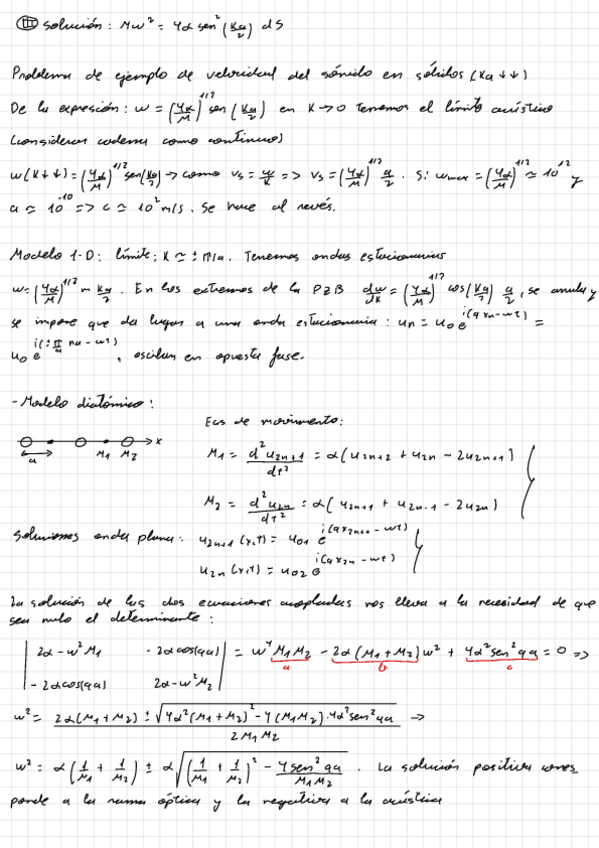 (III) solución: Mω² = 4α sen²(Ka/2) dS
Problema de ejemplo de velocidad del sonido en sólidos (Ka ↓↓)
De la expresión: ω = (4α/M)^1/2 sen(Ka/2) en K→0 tenemos el límite acústico
(considerar cadena como continuo)
ω(K↓↓) = (4α/M)^1/2 sen(Ka/2) → como vs = ω/K => vs = (4α/M)^1/2 a/2. Si ωmax = (4α/M)^1/2 ≃ 10^12 y
a ≃ 10^-10 => c ≃ 10² m/s. Se hace al revés.
Modelo 1-D: límite; K ≃ ± π/a. Tenemos ondas estacionarias
ω = (4α/M)^1/2 Ka/2. En los extremos de la PZB dω/dK = (4α/M)^1/2 cos(Ka/2) a/2, se anula y
se impone que da lugar a una onda estacionaria: un = u0 e^i(q xn - ωt) =
u0 e^i(± π/a na - ωt), oscilan en opuesta fase.
- Modelo diatómico:
Ecs de movimiento:
x
a M1 M2
M1 = d²u2n+1/dt² = α(u2n+2 + u2n - 2u2n+1)
M2 = d²u2n/dt² = α(u2n+1 + u2n-1 - 2u2n)
Soluciones onda plana: u2n+1(x,t) = u01 e^i(q x2n+1 - ωt)
u2n(x,t) = u02 e^i(q x2n - ωt)
La solución de las dos ecuaciones acopladas nos lleva a la necesidad de que
sea nulo el determinante:
| 2α - ω²M1 - 2α cos(qa) | = ω⁴M1M2 - 2α(M1 + M2)ω² + 4α² sen² qa = 0 =>
a b c
| - 2α cos(qa) 2α - ω²M2 |
ω² = 2α(M1 + M2) ± √(4α²(M1 + M2)² - 4(M1M2)·4α² sen² qa) / 2M1M2 →
ω² = α(1/M1 + 1/M2) ± α√((1/M1 + 1/M2)² - 4 sen² qa/M1M2). La solución positiva corres
ponde a la rama óptica y la negativa a la acústica